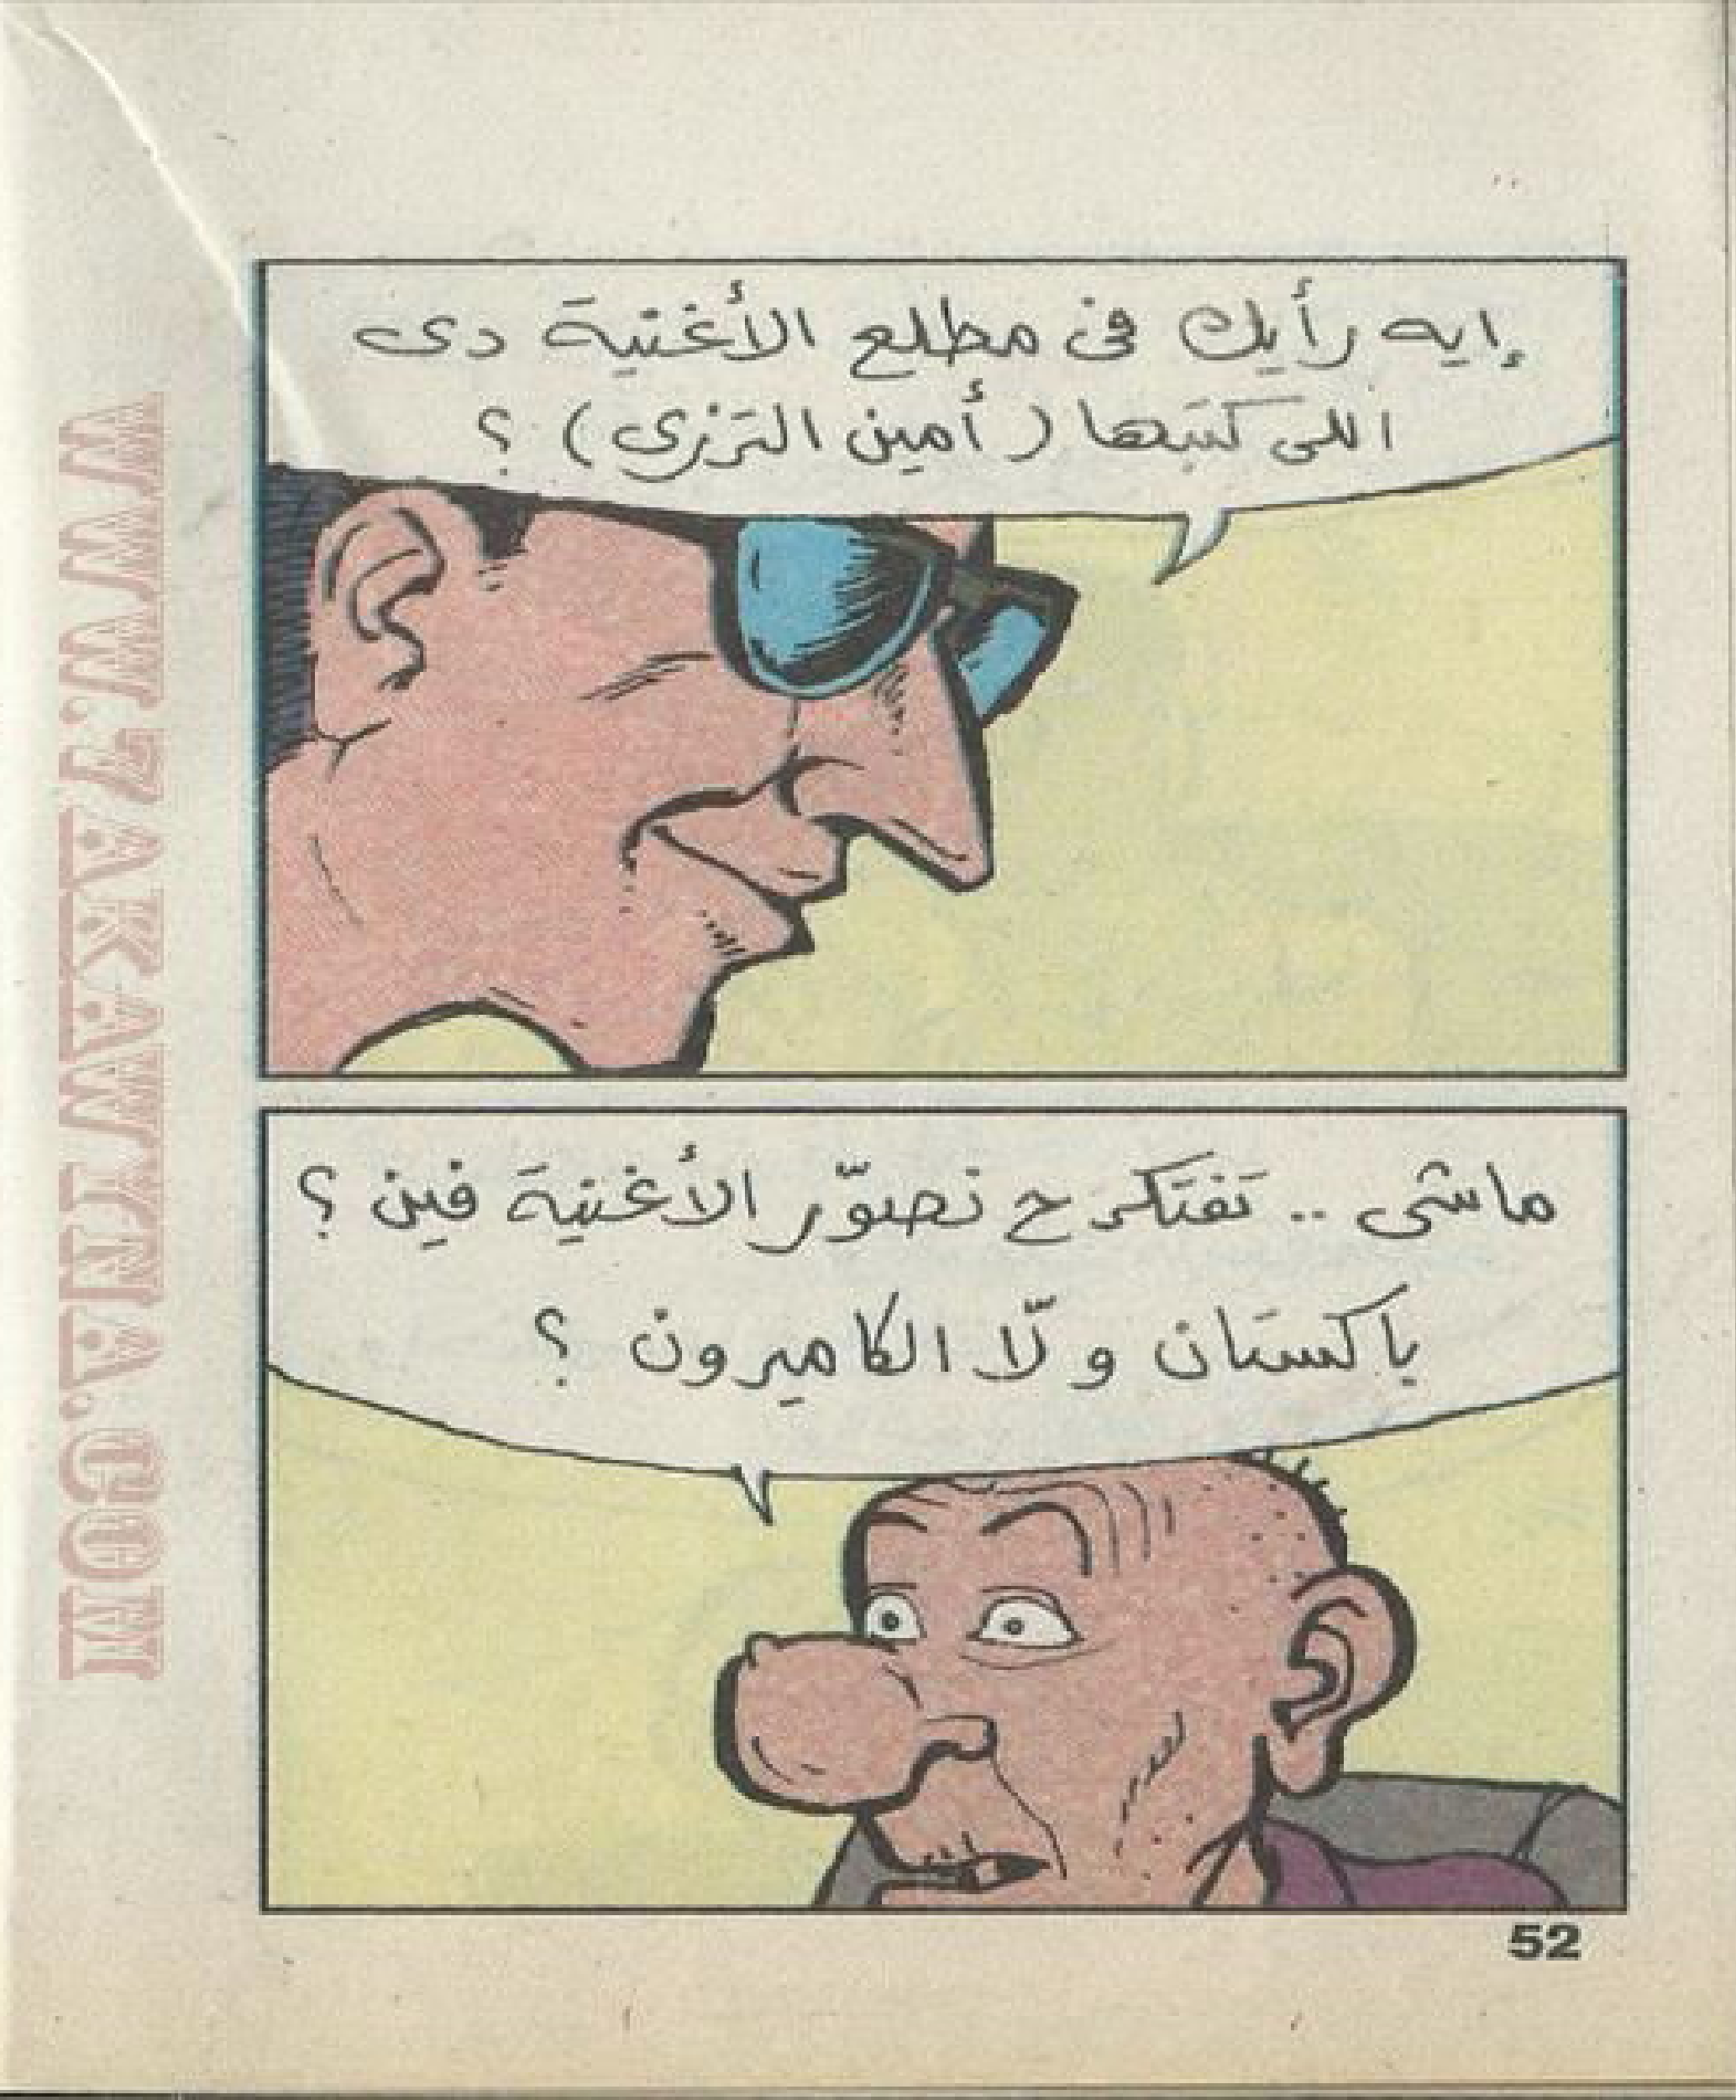 إيه رأيك فى مطلع الأغنية دى
اللى كتبها (أمين الترزى) ؟
ماشى .. تفتكر ح نصوّر الأغنية فين ؟
باكستان ولّا الكاميرون ؟
52
WWW.7AKAWITNA.COM